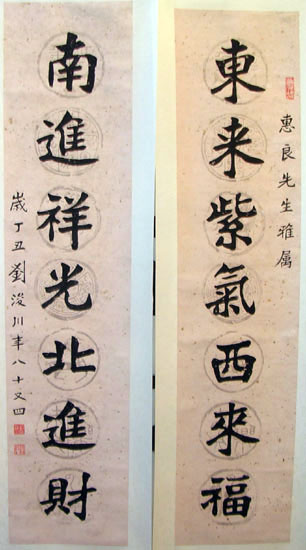 東来紫氣西來福
惠良先生雅属
南進祥光北進財
歲丁丑劉浚川年八十又四